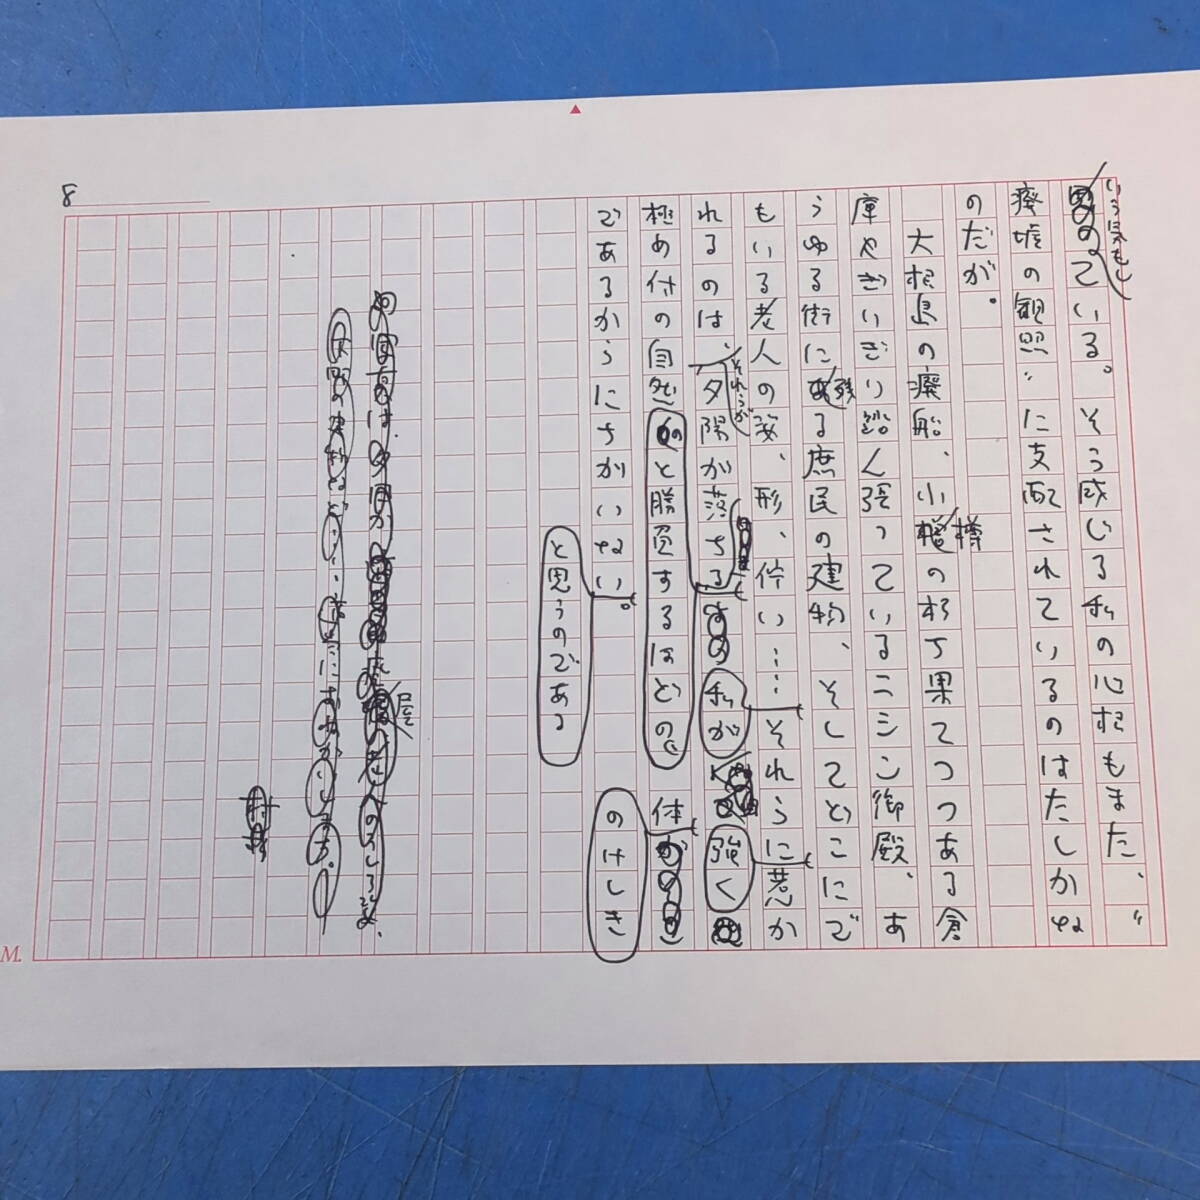 8
いう気もし
ている。そう感じる私の心根もまた、〝
廃墟の観照〟に支配されているのはたしかな
のだが。
大根島の廃船、小樽の朽ち果てつつある倉
庫やぎりぎり踏ん張っているニシン御殿、あ
らゆる街に残る庶民の建物、そしてどこにで
もいる老人の姿、形、佇い…それらに惹か
れるのは、夕陽が落ちる
それらが
私が
強く
極め付の自然と勝負するほどの
体
であるからにちがいない。
のけしき
と思うのである
屋
M.